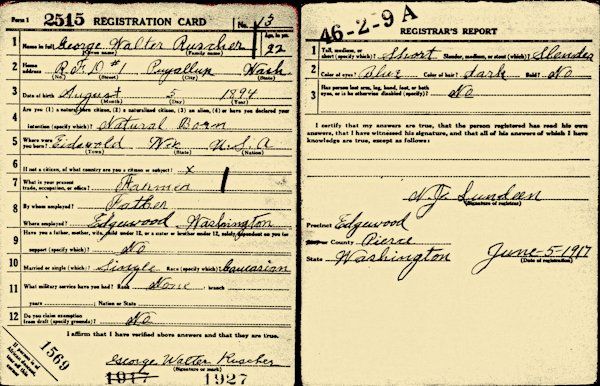 Form 1 2515 REGISTRATION CARD No. 13
1 Name in full George Walter Ruscher Age, in yrs. 22
(Given name) (Family name)
2 Home address R.F.D #1 Puyallup Wash
(No.) (Street) (City) (State)
3 Date of birth August 5 1894
(Month) (Day) (Year)
4 Are you (1) a natural born citizen, (2) a naturalized citizen, (3) an alien, (4) or have you declared your
intention (specify which)? Natural Born
5 Where were you born? Eidsvold Wis U.S.A
(Town) (State) (Nation)
6 If not a citizen, of what country are you a citizen or subject? x
7 What is your present trade, occupation, or office? Farmer
8 By whom employed? Father
Where employed? Edgewood Washington
9 Have you a father, mother, wife, child under 12, or a sister or brother under 12, solely dependent on you for
support (specify which)? No
10 Married or single (which)? Single Race (specify which)? Caucasian
11 What military service have you had? Rank None ; branch
years ; Nation or State
12 Do you claim exemption from draft (specify grounds)? No
I affirm that I have verified above answers and that they are true.
1569
George Walter Ruscher
(Signature or mark)
1917 1927
If person is of African descent, tear off this corner
46-2-9 A
REGISTRAR'S REPORT
1 Tall, medium, or short (specify which)? Short Slender, medium, or stout (which)? Slender
2 Color of eyes? Blue Color of hair? dark Bald? No
3 Has person lost arm, leg, hand, foot, or both
eyes, or is he otherwise disabled (specify)? No
I certify that my answers are true, that the person registered has read his own
answers, that I have witnessed his signature, and that all of his answers of which I have
knowledge are true, except as follows:
N.J. Lundeen
(Signature of registrar)
Precinct Edgewood
County Pierce
State Washington June-5-1917
(Date of registration)